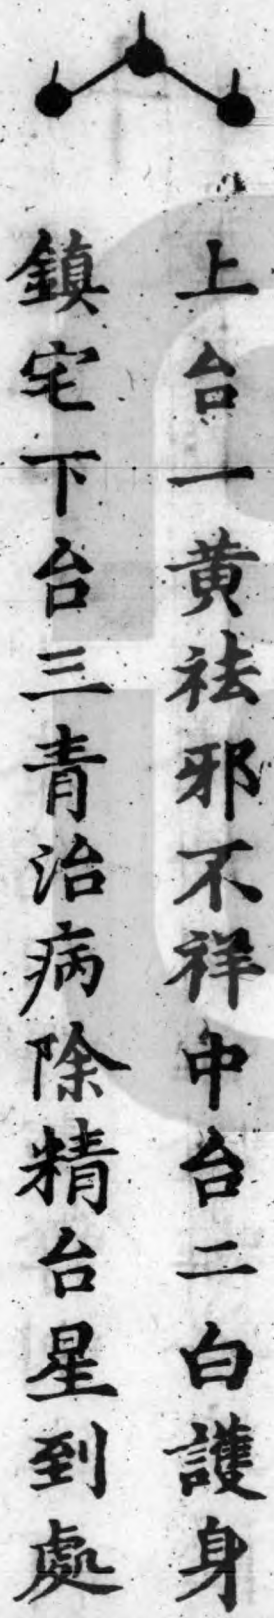 上台一黄祛邪不祥中台二白護身
鎮宅下台三青治病除精台星到處